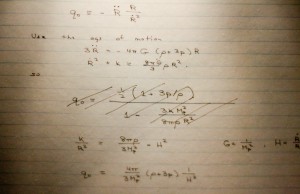 q₀ = - R̈ R / Ṙ²
Use the eqs of motion
3R̈ = - 4π G (ρ+3p) R
Ṙ² + k = 8πρ/3 R².
so
q₀ = ½ (1 + 3p/ρ) / 1 - 3kMₚ²/8πρR²
k/R² = 8πρ/3Mₚ² - H² G = 1/Mₚ², H =
q₀ = 4π/3Mₚ² (ρ+3p) 1/H²